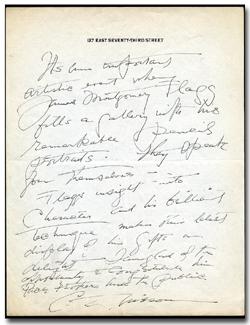 127 EAST SEVENTY-THIRD STREET
Its an important
artistic event when
James Montgomery Flagg
fills a gallery with his
remarkable pencil
portraits. They speak
for themselves -
Flagg's insight into
character and his brilliant
technique makes this latest
display of his gifts a
delight -
to
his
to the public.